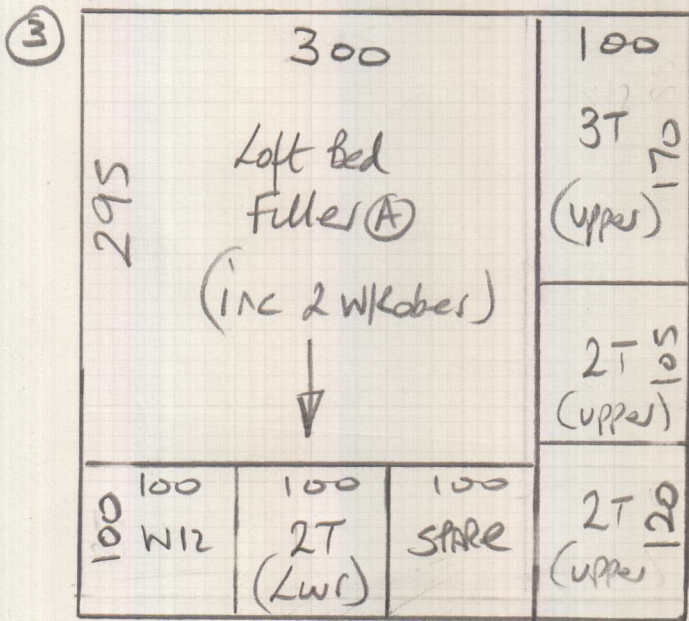 3
300
295
Loft Bed
Filler A
(inc 2 W/Robes)
100
3T
170
(upper)
2T
105
(upper)
2T
120
(upper
100
100
W12
100
2T
(Lwr)
100
SPARE